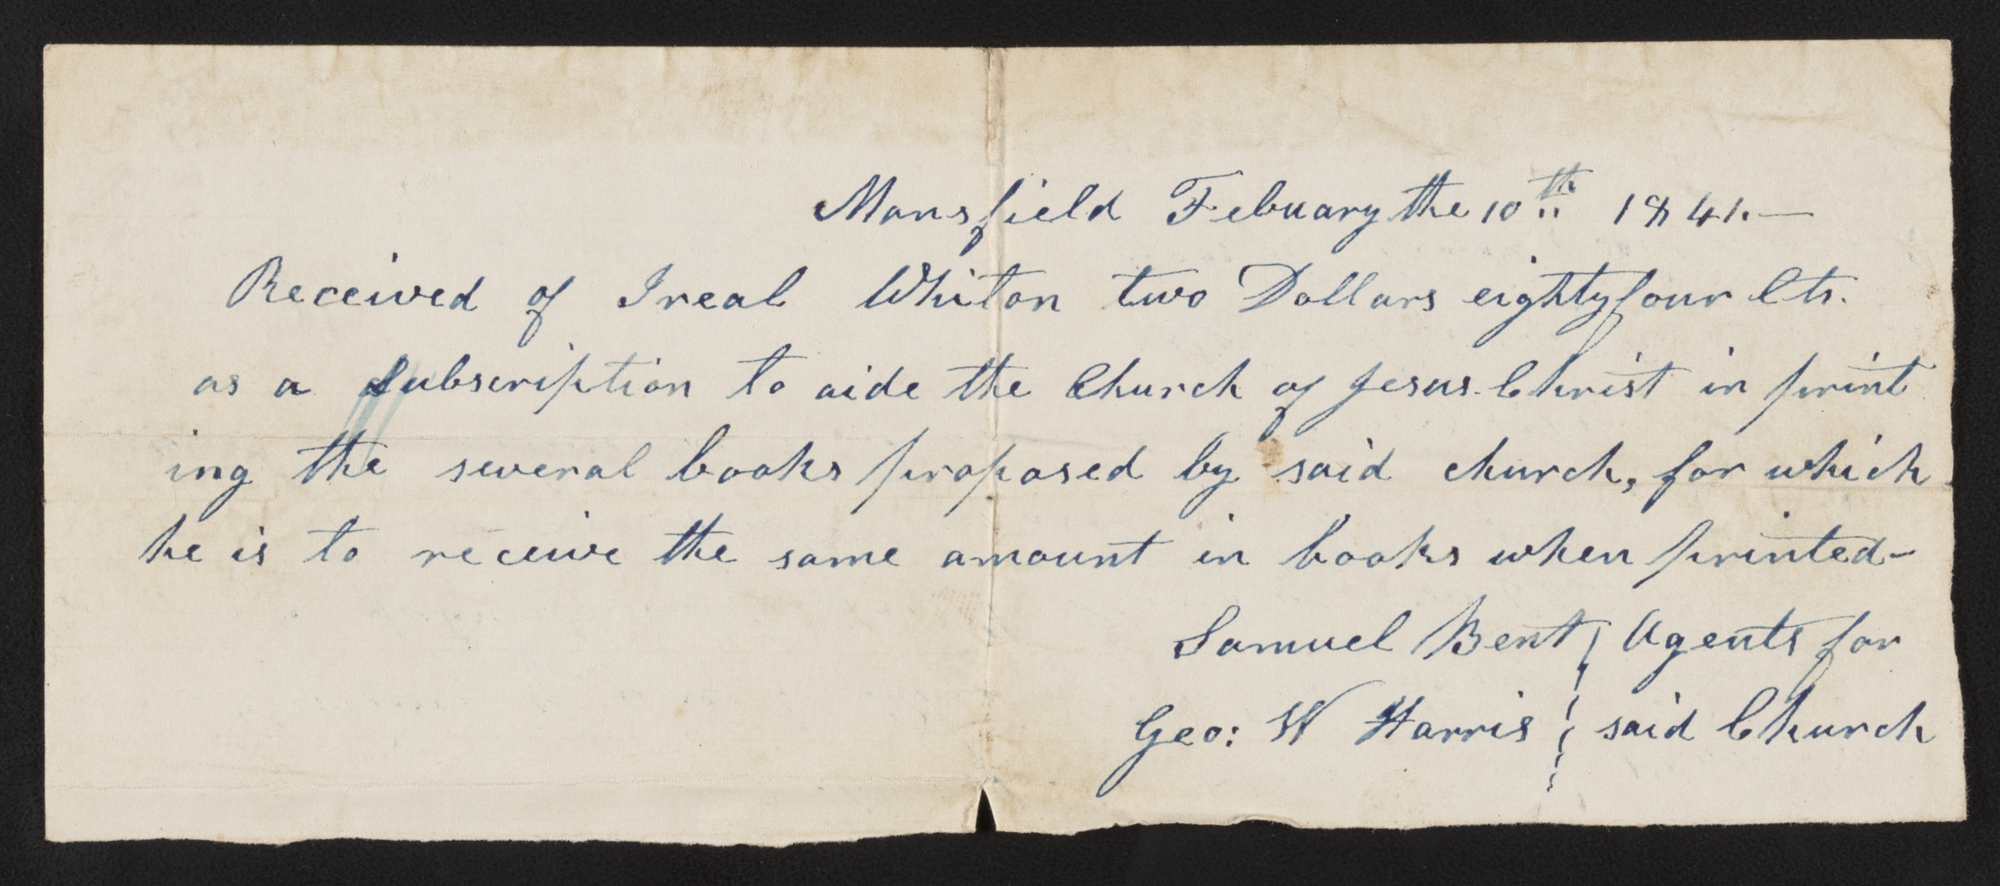 Mansfield Febuary the 10th 1841.—
Received of Ireal Whiton two Dollars eighty four Cts.
as a subscription to aide the Church of Jesus Christ in print
ing the several books proposed by said church, for which
he is to receive the same amount in books when printed-
Samuel Bent } Agents for
Geo: W Harris } said Church